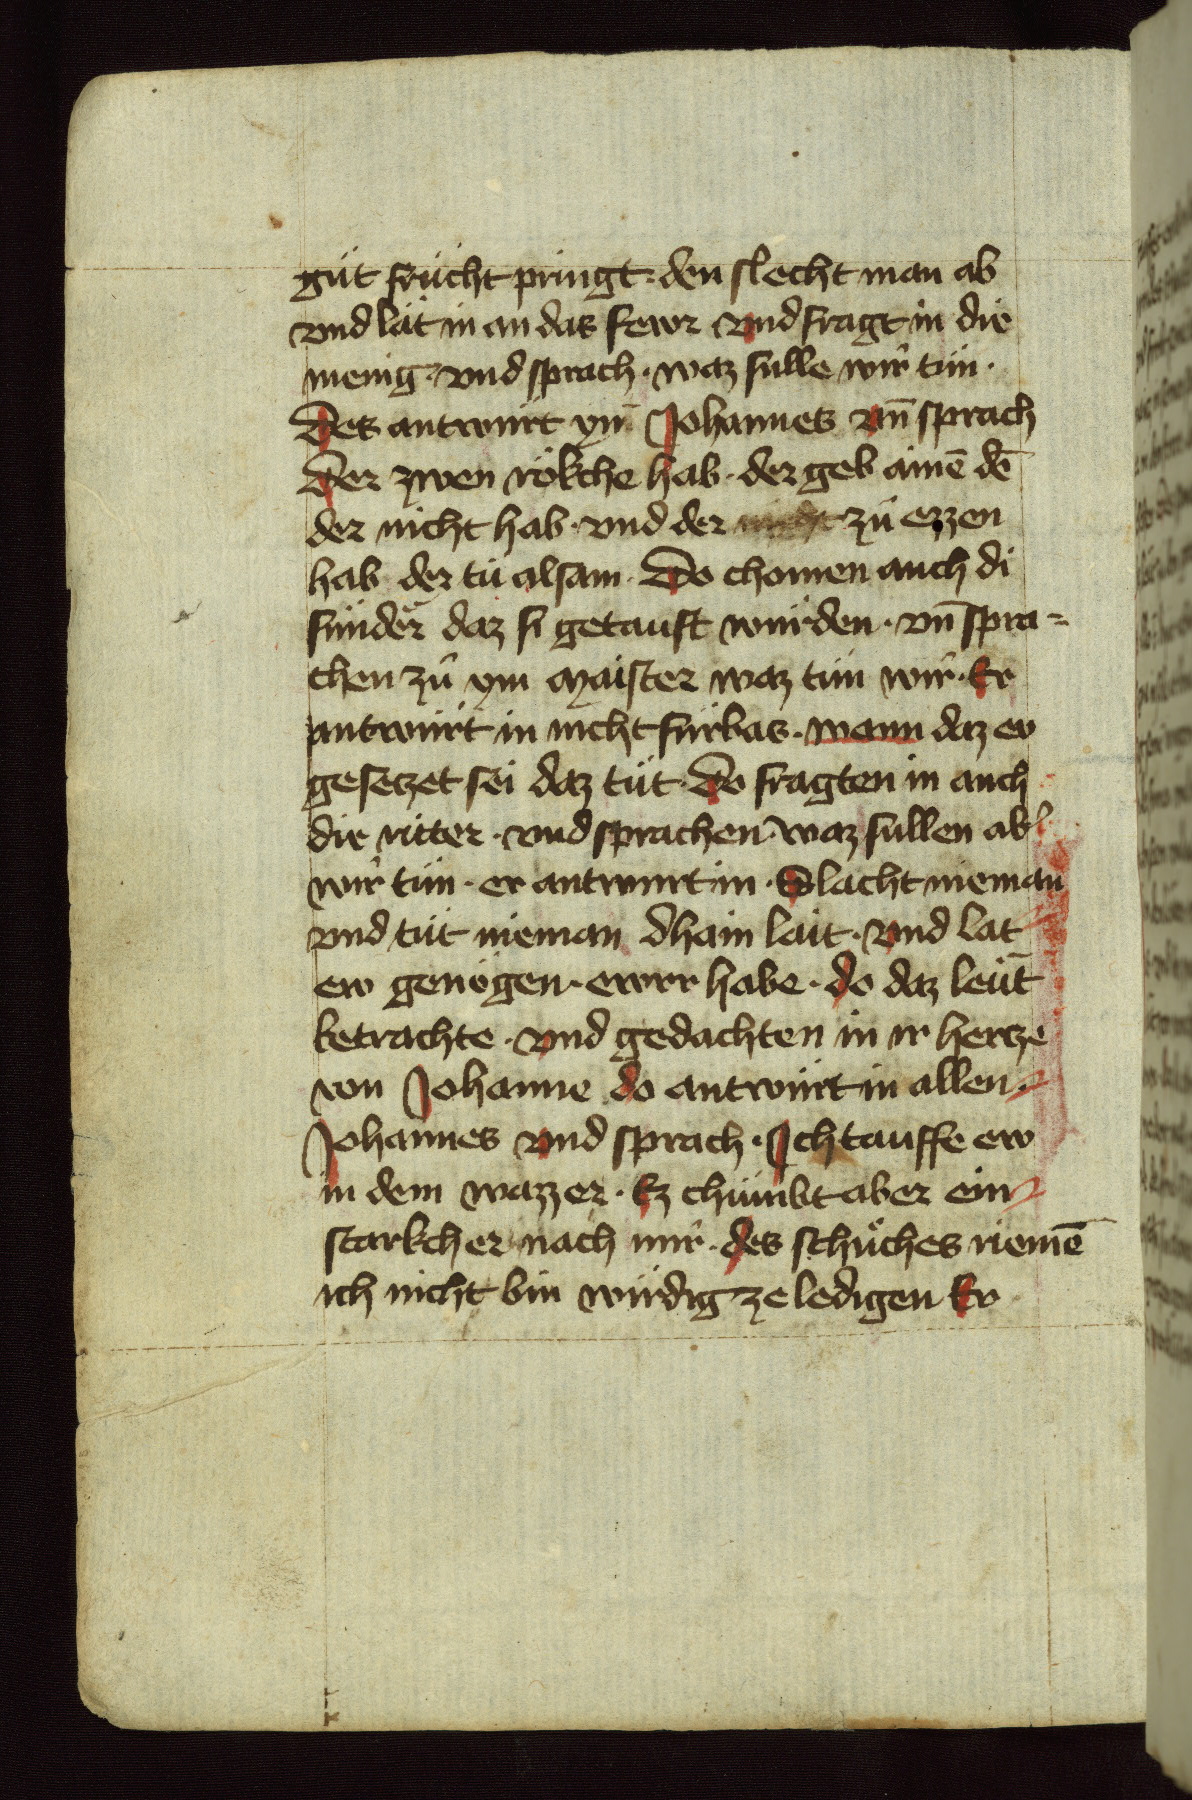 güt frücht pringt · den slecht man ab
vnd lät in an das fewr vnd fragt in die
menig · vnd sprach · waz sulle wir tün ·
Des antwürt ym Johannes vn̄ sprach
Der zwen rökche hab · der geb ainē dē
der nicht hab · vnd der nicht zů ezzen
hab der tü alsam · Do chomen auch di
sünder daz si getauft würden · vn̄ spra=
chen zů ym maister waz tün wir · Er
antwürt in nicht fürbas · wann daz ew
gesetzet sei daz tüt · Do fragten in auch
die ritter · vnd sprachen waz sullen ab̛
wir tün · er antwurt in · Slacht nieman
vnd tüt nieman dhain lait · vnd lat
ew genögen · ewrr habe · do daz leüt
betrachte · vnd gedachten in ir hertze
von Johanne do antwürt in allen ·
Johannes vnd sprach · Ich tauffe ew
in dem wazzer · Ez chümbt aber ein
starkcher nach mir · des schůches riemē
ich nicht bin wirdig ze ledigen Er